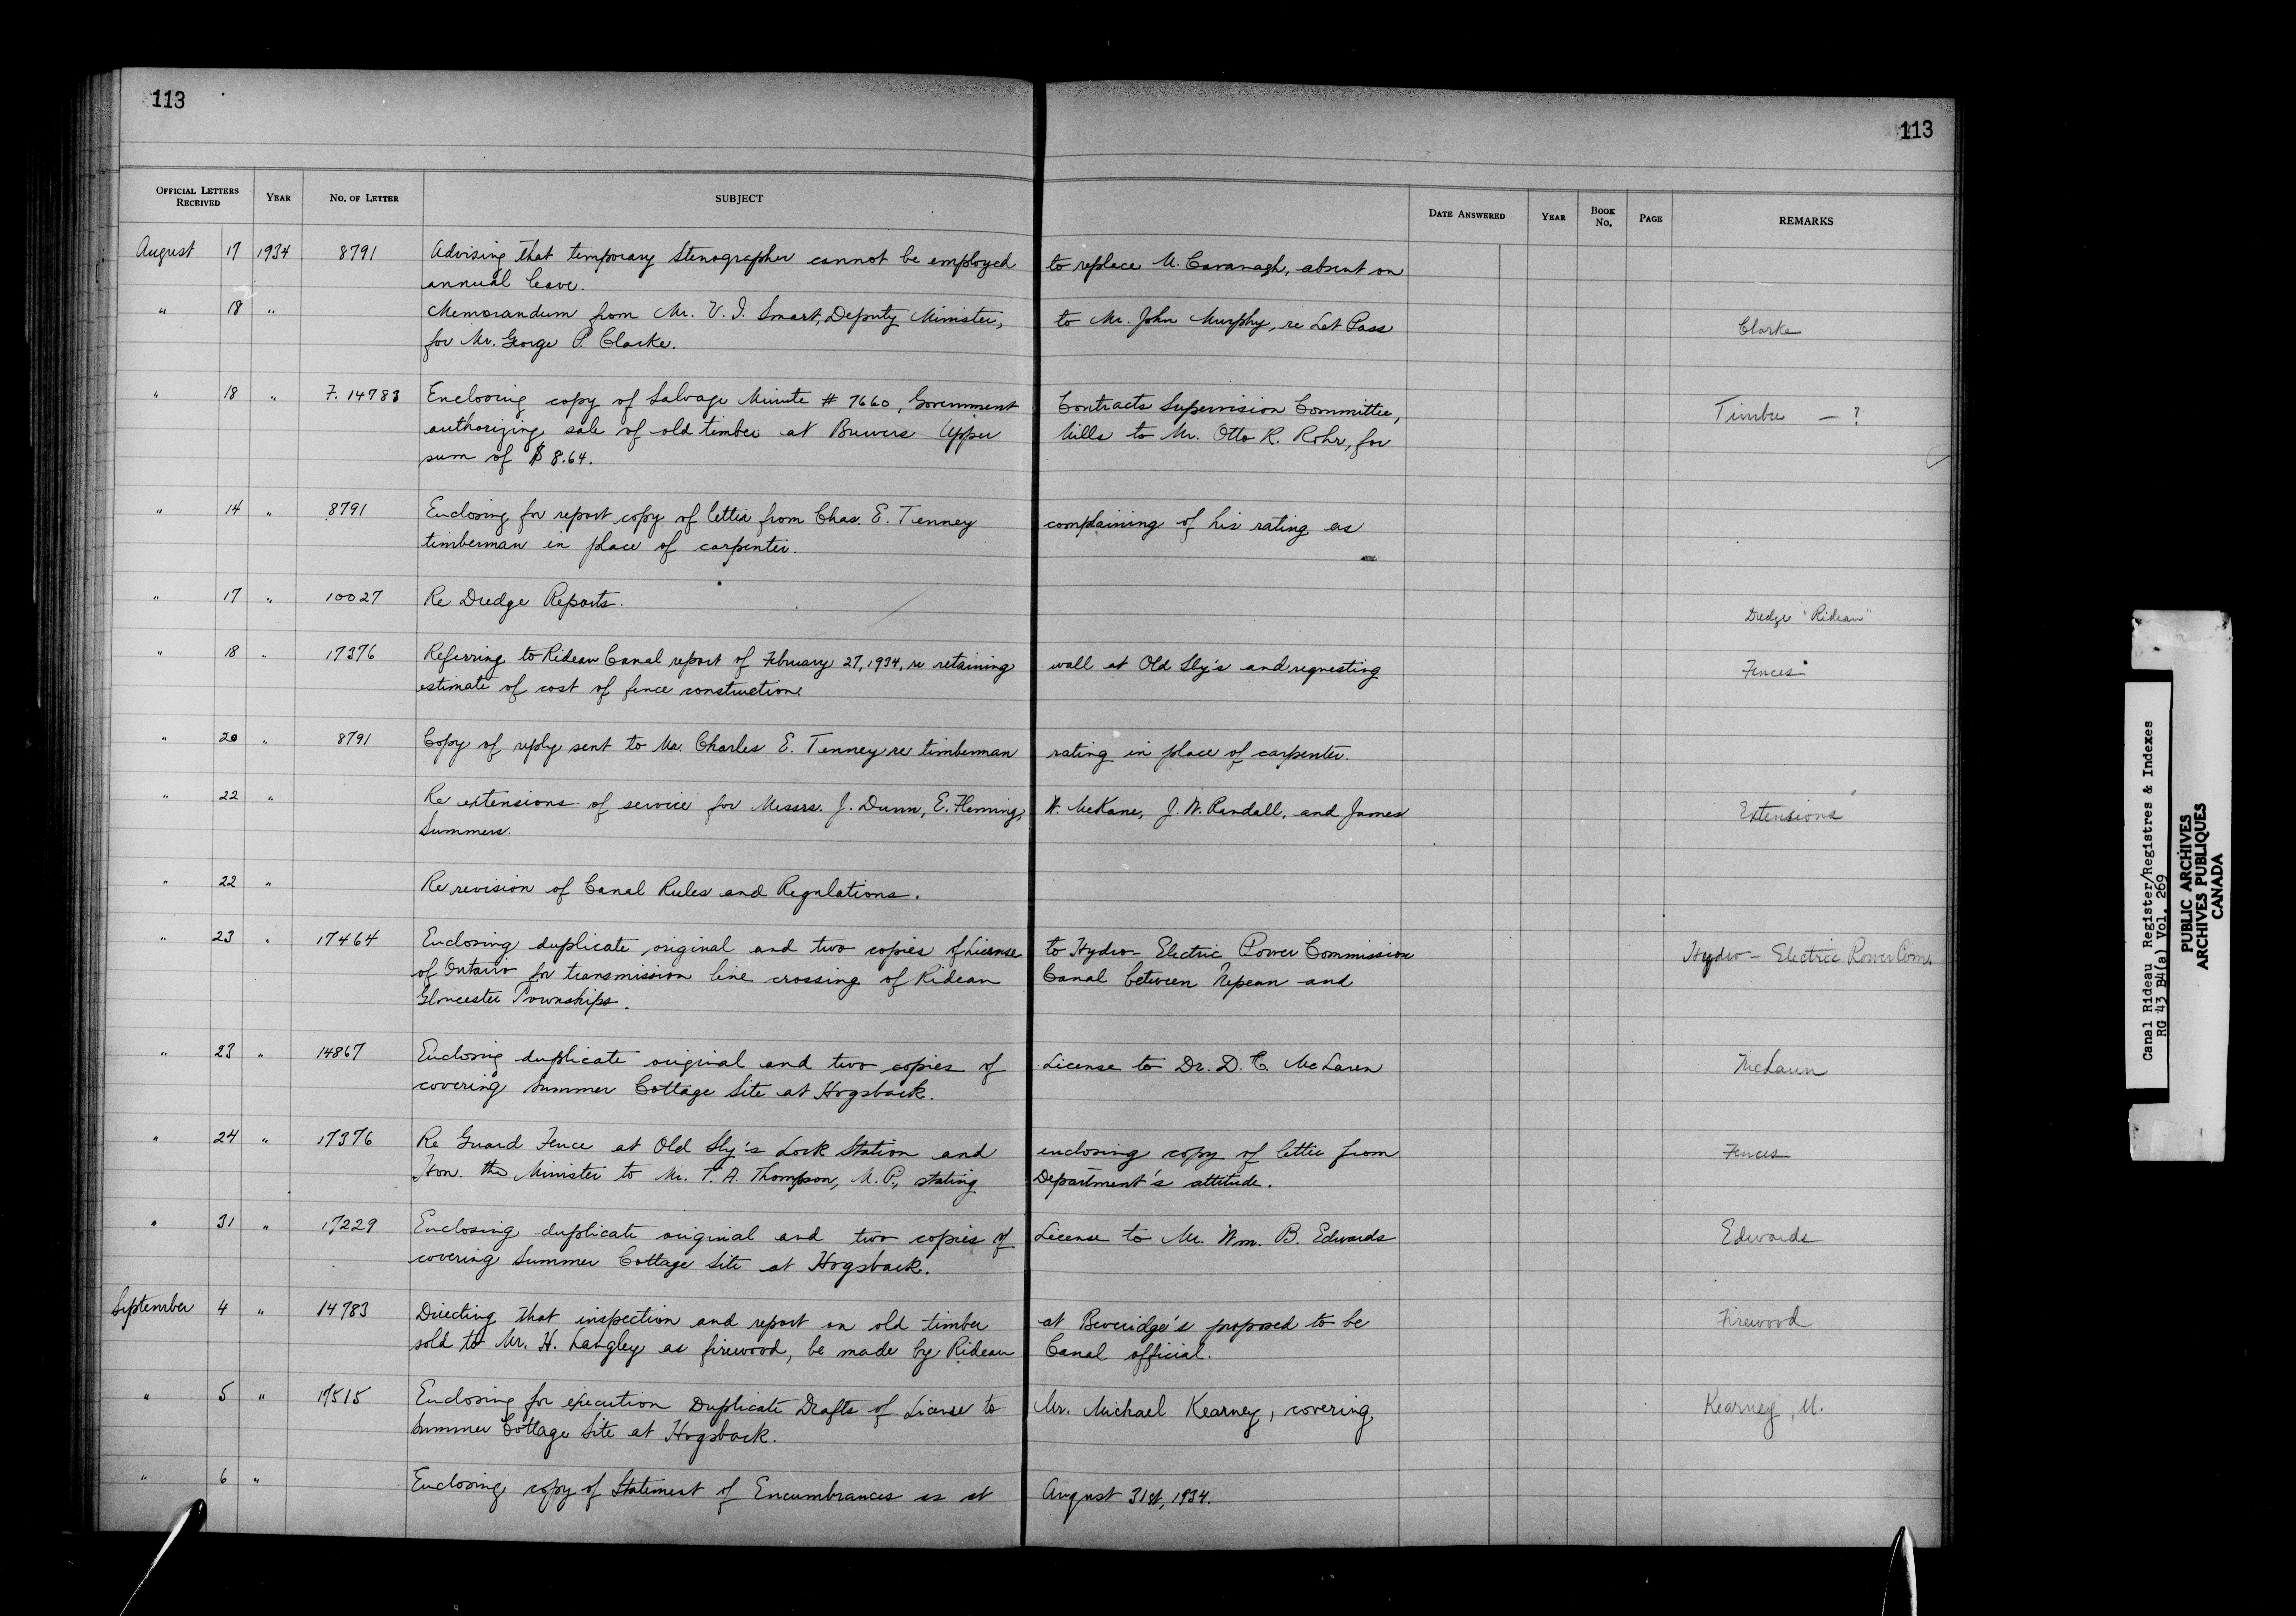 113
113
OFFICIAL LETTERS RECEIVED YEAR NO. OF LETTER SUBJECT DATE ANSWERED YEAR BOOK No. PAGE REMARKS
August 17 1934 8791 Advising that temporary Stenographer cannot be employed to replace M. Cavanagh, absent on
annual leave.
" 18 " Memorandum from Mr. V. I. Smart, Deputy Minister, to Mr. John Murphy, re Let Pass
for Mr. George P. Clarke. Clarke
" 18 " F. 14783 Enclosing copy of Salvage Minute # 7660, Government Contracts Supervision Committee, Timber - ?
authorizing sale of old timber at Brewers Upper Mills to Mr. Otto R. Rohr, for
sum of $8.64.
" 14 " 8791 Enclosing for report copy of letter from Chas. E. Tenney complaining of his rating as
timberman in place of carpenter.
" 17 " 10027 Re Dredge Reports. Dredge "Rideau"
" 18 " 17376 Referring to Rideau Canal report of February 27, 1934, re retaining wall at Old Sly's and requesting Fences
estimate of cost of fence construction
" 20 " 8791 Copy of reply sent to Mr. Charles E. Tenney re timberman rating in place of carpenter.
" 22 " Re extensions of service for Messrs. J. Dunn, E. Fleming, W. McKane, J. W. Randall, and James Extensions
Summers.
" 22 " Re revision of Canal Rules and Regulations.
" 23 " 17464 Enclosing duplicate original and two copies of License to Hydro-Electric Power Commission Hydro-Electric Power Com.
of Ontario for transmission line crossing of Rideau Canal between Nepean and
Gloucester Townships.
" 23 " 14867 Enclosing duplicate original and two copies of License to Dr. D. C. McLaren McLaren
covering Summer Cottage Site at Hogsback.
" 24 " 17376 Re Guard Fence at Old Sly's Lock Station and enclosing copy of letter from Fences
Hon. the Minister to Mr. T. A. Thompson, M.P., stating Department's attitude.
" 31 " 17229 Enclosing duplicate original and two copies of License to Mr. Wm. B. Edwards Edwards
covering Summer Cottage Site at Hogsback.
September 4 " 14783 Directing that inspection and report on old timber at Beveridge's proposed to be Firewood
sold to Mr. H. Langley as firewood, be made by Rideau Canal official.
" 5 " 17515 Enclosing for execution Duplicate Drafts of License to Mr. Michael Kearney, covering Kearney, M.
Summer Cottage Site at Hogsback.
" 6 " Enclosing copy of Statement of Encumbrances as at August 31st, 1934.
Canal Rideau Register/Registres & Indexes
RG 43 B4(a) Vol. 269
PUBLIC ARCHIVES
ARCHIVES PUBLIQUES
CANADA